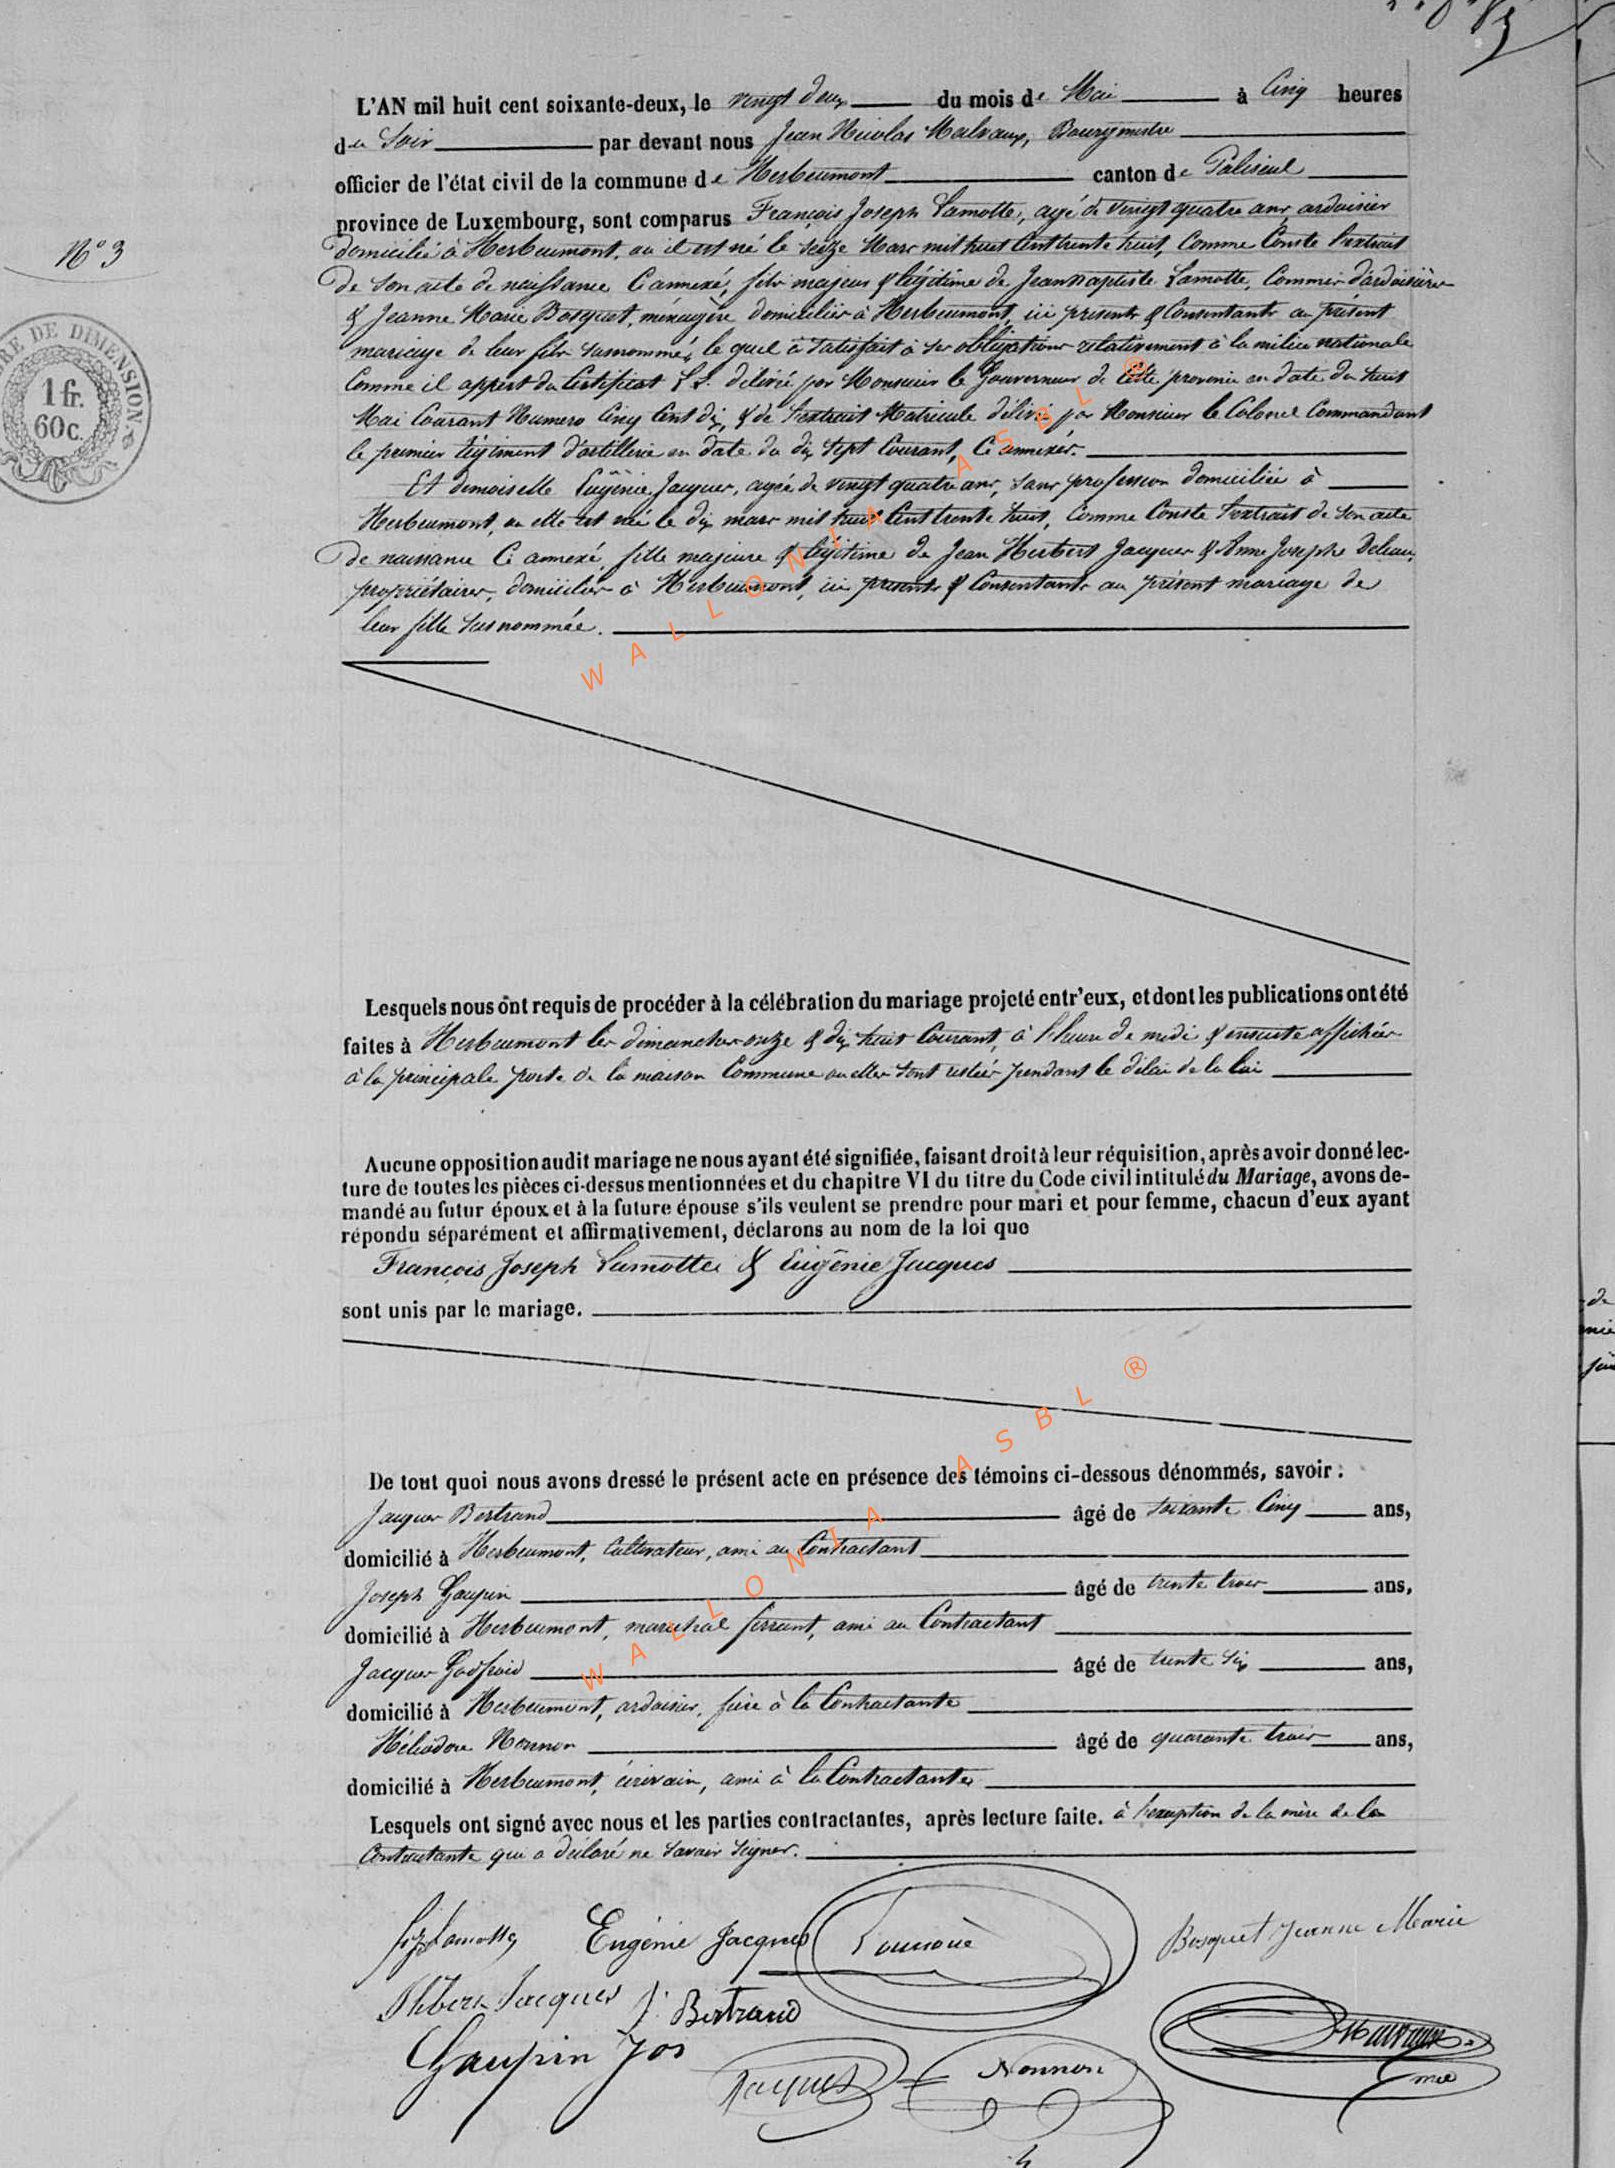 L'AN mil huit cent soixante-deux, le vingt deux du mois de Mai à Cinq heures
du Soir par devant nous Jean Nicolas Malvaux, Bourgmestre
officier de l'état civil de la commune de Herbeumont canton de Paliseul
province de Luxembourg, sont comparus François Joseph Lamotte, agé de vingt quatre ans, ardoisier
N° 3
domicilié à Herbeumont, ou il est né le seize Mars mil huit Cent trente huit, Comme Conste l'extrait
de son acte de naissance Ci annexé, fils majeur & légitime de Jean Baptiste Lamotte, Commis d'ardoisières
& Jeanne Marie Bosquet, ménagère domiciliés à Herbeumont, ici présents & Consentants au présent
mariage de leur fils susnommé, le quel à Satisfait à ses obligations relativement à la milice nationale
Comme il appert du Certificat délivré par Monsieur le Gouverneur de Cette province en date du huit
Mai Courant Numero Cinq Cent dix, & de l'extrait Matricule délivré par Monsieur le Colonel Commandant
le premier régiment d'artillerie en date du dix sept Courant, Ci annexés.
Et demoiselle Eugénie Jacques, agée de vingt quatre ans, sans profession domiciliée à
Herbeumont, ou elle est née le dix mars mil huit Cent trente huit, Comme Conste l'extrait de son acte
de naissance Ci annexé, fille majeure & légitime de Jean Herbert Jacques & Anne Josephe Deleau,
propriétaires, domiciliés à Herbeumont, ici présents & Consentants au présent mariage de
leur fille susnommée.
RE DE DIMENSION
1 fr.
60c.
WALLONIA ASBL ®
Lesquels nous ont requis de procéder à la célébration du mariage projeté entr'eux, et dont les publications ont été
faites à Herbeumont les dimanches onze & dix huit Courant, à l'heure de midi & ensuite affichées
à la principale porte de la maison Commune ou elles sont restées pendant le délai de la loi
Aucune opposition audit mariage ne nous ayant été signifiée, faisant droit à leur réquisition, après avoir donné lec-
ture de toutes les pièces ci-dessus mentionnées et du chapitre VI du titre du Code civil intitulé du Mariage, avons de-
mandé au futur époux et à la future épouse s'ils veulent se prendre pour mari et pour femme, chacun d'eux ayant
répondu séparément et affirmativement, déclarons au nom de la loi que
François Joseph Lamotte & Eugénie Jacques
sont unis par le mariage.
WALLONIA ASBL ®
De tout quoi nous avons dressé le présent acte en présence des témoins ci-dessous dénommés, savoir :
Jacques Bertrand âgé de soixante Cinq ans,
domicilié à Herbeumont, Cultivateur, ami au Contractant
Joseph Gaupin âgé de trente trois ans,
domicilié à Herbeumont, marechal ferrant, ami au Contractant
Jacques Godfroid âgé de trente six ans,
domicilié à Herbeumont, ardoisier, frère à la Contractante
Héliodore Nonnon âgé de quarante trois ans,
domicilié à Herbeumont, écrivain, ami à la Contractante
Lesquels ont signé avec nous et les parties contractantes, après lecture faite. à l'exception de la mère de la
Contractante qui a déclaré ne savoir signer.
Eugénie Jacques Bosquet Jeanne Marie
Jacques J. Bertrand
Gaupin Jos Jacques Nonnon